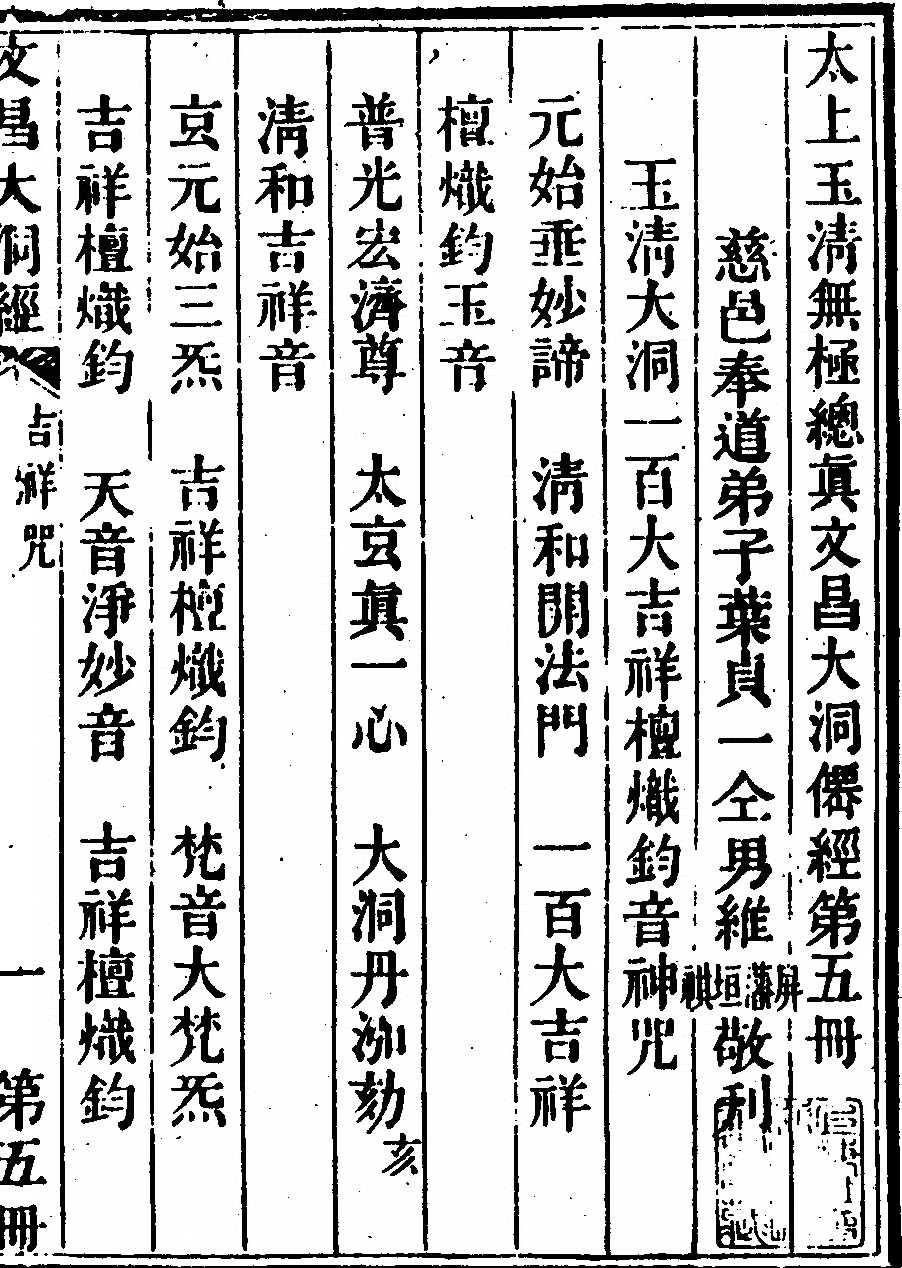 太上玉淸無極總眞文昌大洞僊經第五冊
慈邑奉道弟子葉貞一仝男維屏藩垣祺敬刋
玉淸大洞一百大吉祥檀熾鈞音神咒
元始垂妙諦　淸和開法門　一百大吉祥
檀熾鈞玉音
普光宏濟尊　太玄眞一心　大洞丹泐劾亥
淸和吉祥音
玄元始三炁　吉祥檀熾鈞　梵音大梵炁
吉祥檀熾鈞　天音淨妙音　吉祥檀熾鈞
文昌大洞經　吉祥咒　一　第五冊